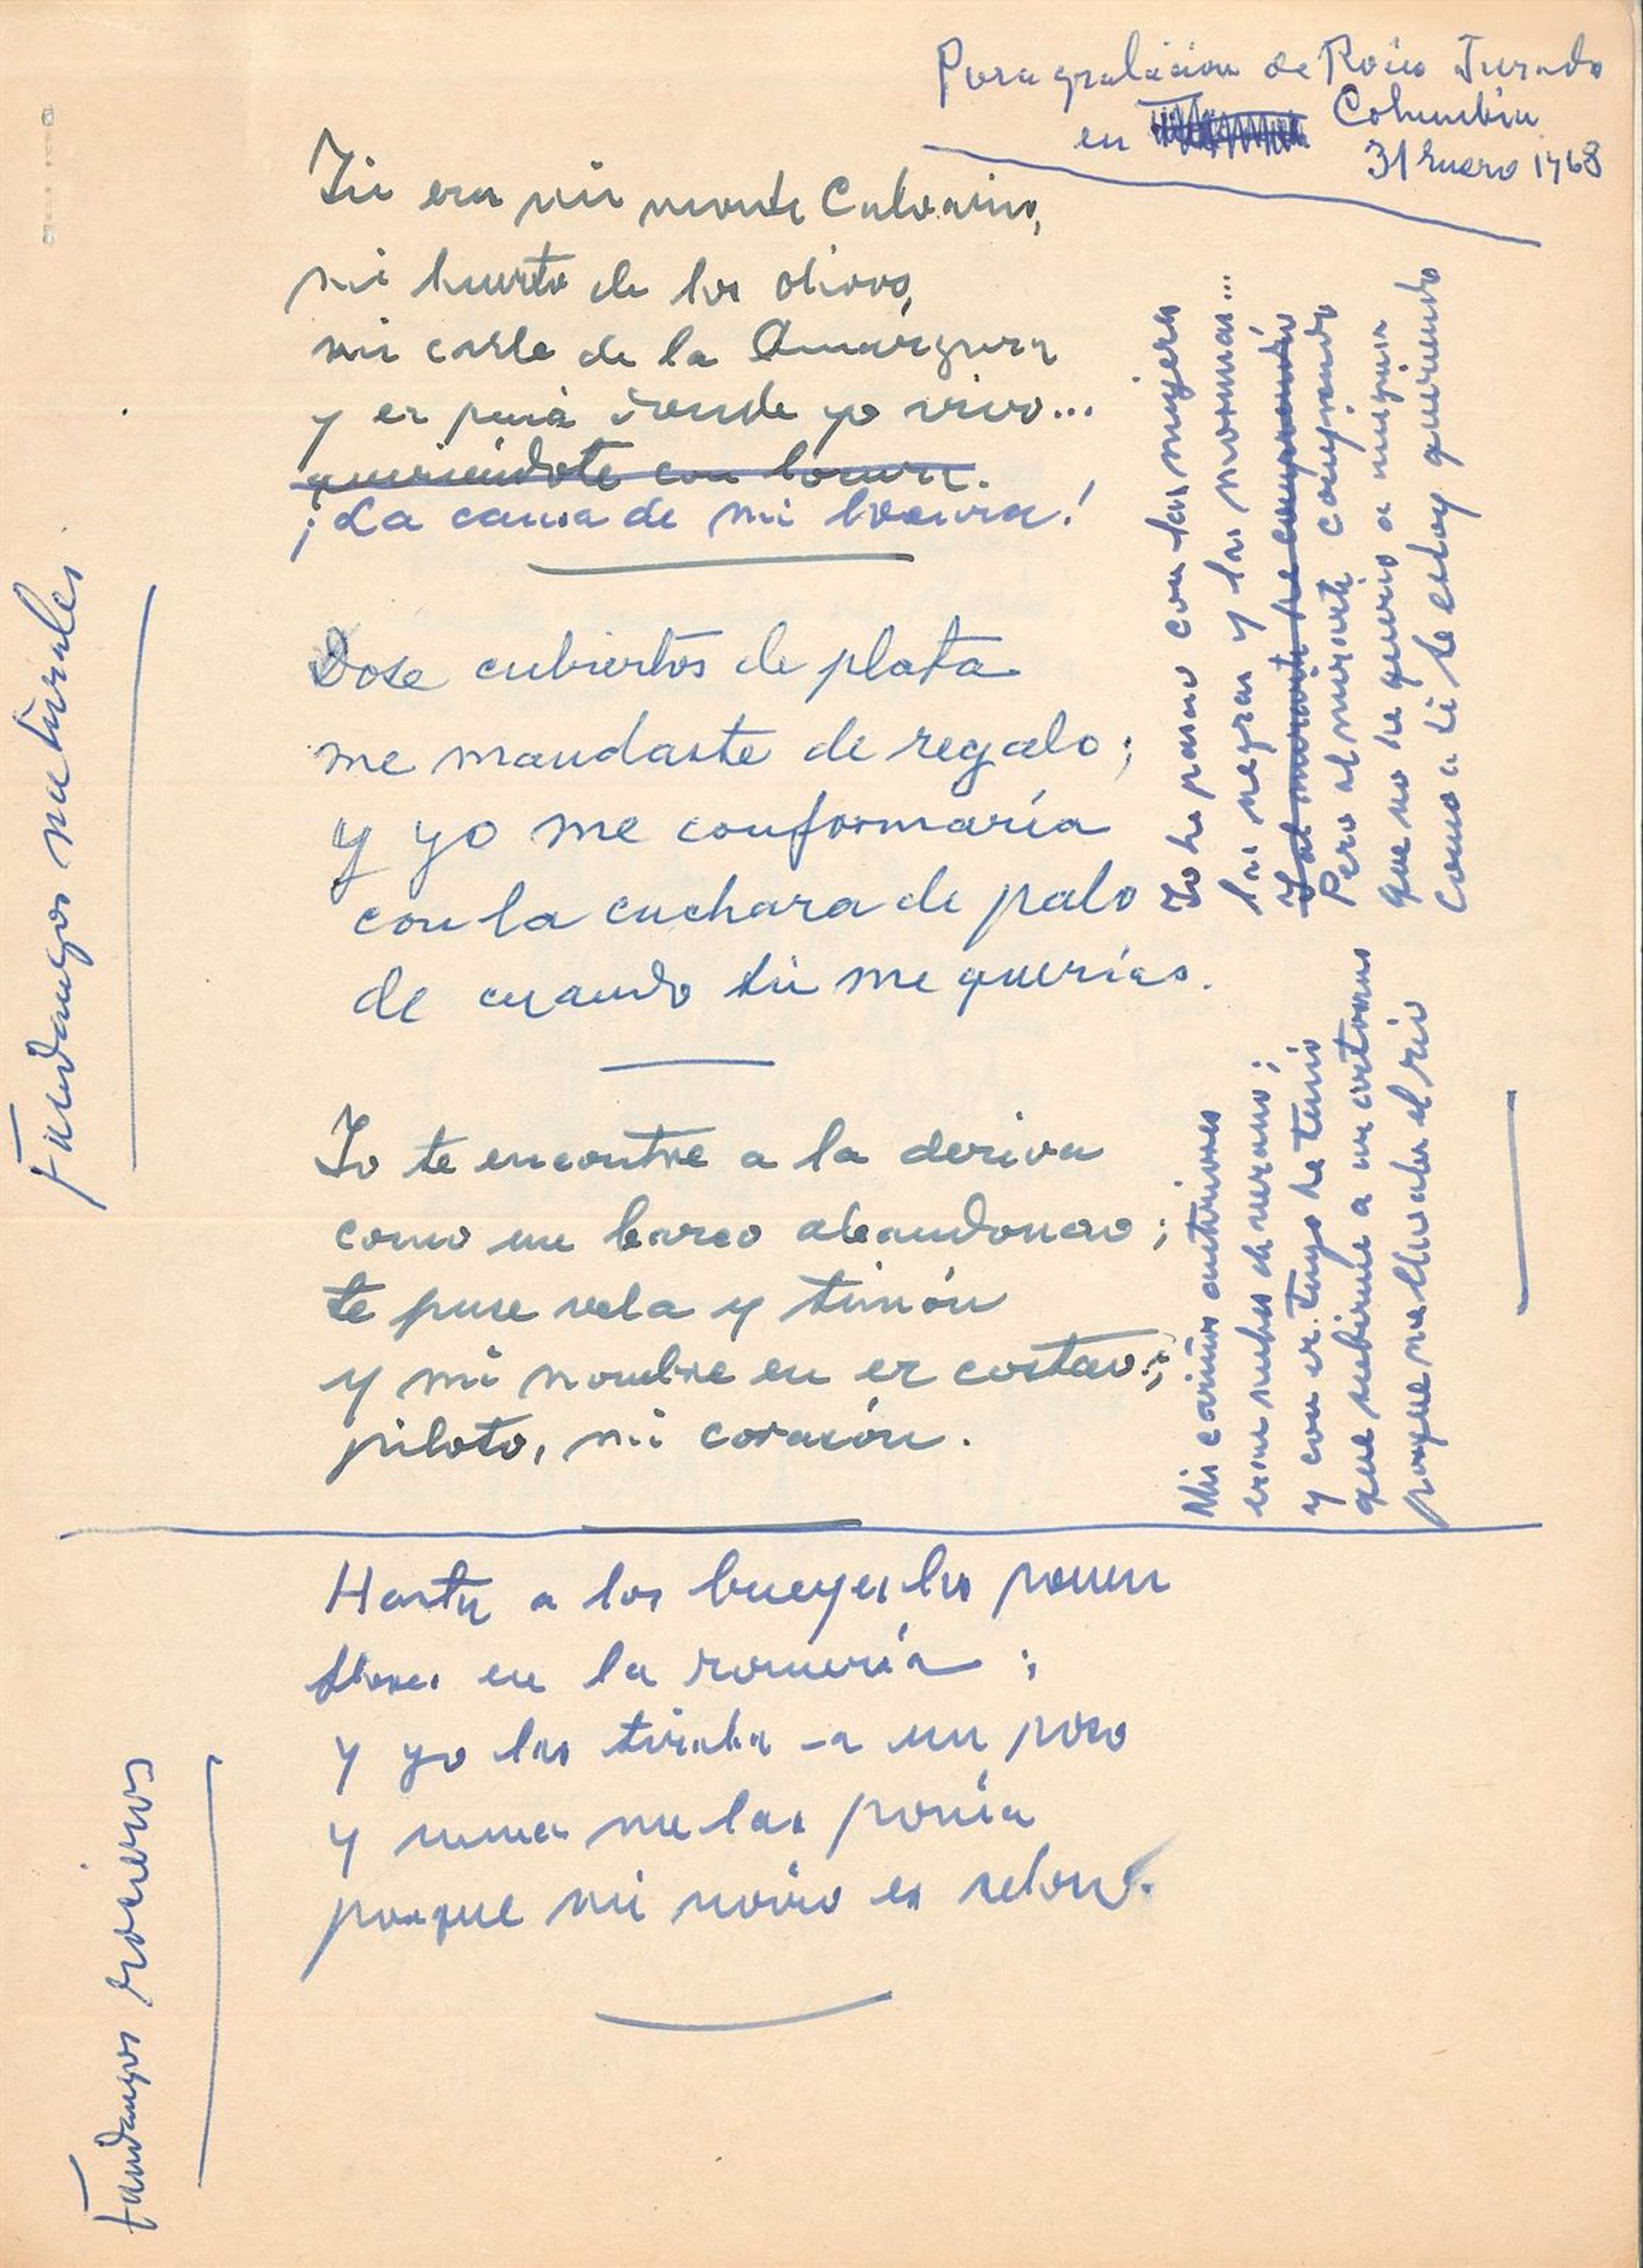 Para grabación de Rocío Jurado
en Columbia
31 Enero 1968
Fandangos naturales
Tú era mi monte Calvario,
mi huerto de los olivos,
mi calle de la Amargura
y er pará donde yo vivo...
queriéndote con locura.
¡La causa de mi locura!
Dose cubiertos de plata
me mandaste de regalo;
y yo me conformaría
con la cuchara de palo
de cuando tú me querías.
Yo te encontré a la deriva
como un barco abandonao;
te puse vela y timón
y mi nombre en er costao;
piloto, mi corasón.
Yo he pasao con las mujeres
las negras y las moradas...
Y al mirarte he comprendío
Pero al mirarte comprendo
que no he querío a ninguna
como a ti te estoy queriendo
Mis cariños anteriores
eran nubes de verano;
y con er tuyo he tenío
que subirme a un artosano
porque me llevaba el río
Fandangos rocieros
Hasta a los bueyes les ponen
flores en la romería;
y yo las tiraba a un poso
y nunca me las ponía
porque mi novio es seloso.